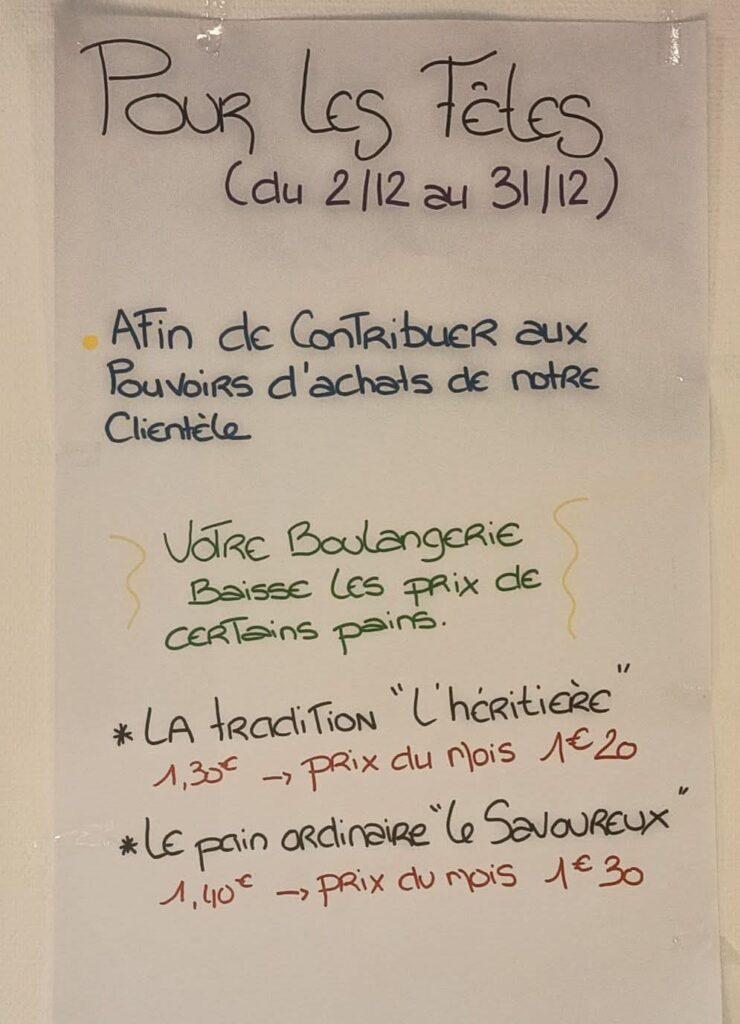 Pour les Fêtes
(du 2/12 au 31/12)
Afin de Contribuer aux
Pouvoirs d'achats de notre
Clientèle
Votre Boulangerie
Baisse les prix de
certains pains.
* La tradition "L'héritière"
1,30€ → prix du mois 1€20
* Le pain ordinaire "le Savoureux"
1,40€ → prix du mois 1€30